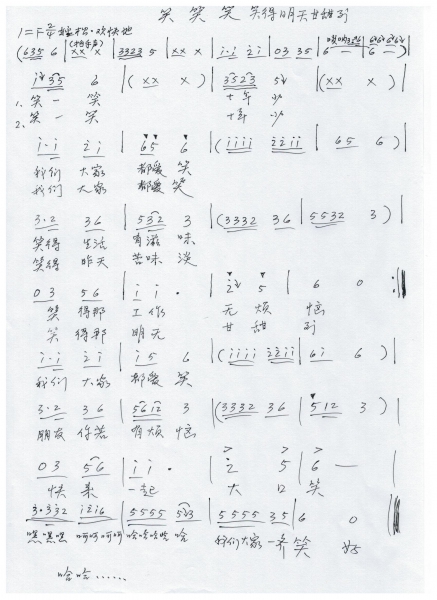 笑 笑 笑 笑得明天甘甜到
1=F 2/4 欢快地
(6 3 5 6 | x x x | 3 3 2 3 5 | x x x | i·i 2 i | 0 3 3 5 | 6 — | 6 — )
i 3 5 6 | ( x x x ) | 3 5 2 3 5 | ( x x x ) |
1. 笑 一 笑 十 年 少
2. 笑 一 笑 十 年 少
i·i 2 i | 6 5 6 | ( i i i i 2 2 i i | 6 5 6 ) |
我们 大家 都爱 笑
我们 大家 都爱 笑
3·2 3 6 | 5 3 2 3 | ( 3 3 3 2 3 6 | 5 5 3 2 3 ) |
笑得 生活 有滋 味
笑得 昨天 苦味 淡
0 3 5 6 | i i · | 2 5 | 6 0 :|
笑 得那 工作 无 烦 恼
笑 得那 明天 甘 甜 到
i·i 2 i | i 5 6 | ( i i i i 2 2 i i | 6 i 6 ) |
我们 大家 都爱 笑
3·2 3 6 | 5 6 i 2 3 | ( 3 3 3 2 3 6 | 5 1 2 3 ) |
朋友 你若 有烦 恼
0 3 5 6 | i i · | 2 5 | 6 — |
快 来 一起 大 口 笑
3·3 3 2 i 2 i 6 | 5 5 5 5 5 2 3 | 5 5 5 5 3 5 | 6 0
嘿嘿嘿 呵呵呵呵 哈哈哈哈 哈 我们大家 一齐 笑 好
哈哈……